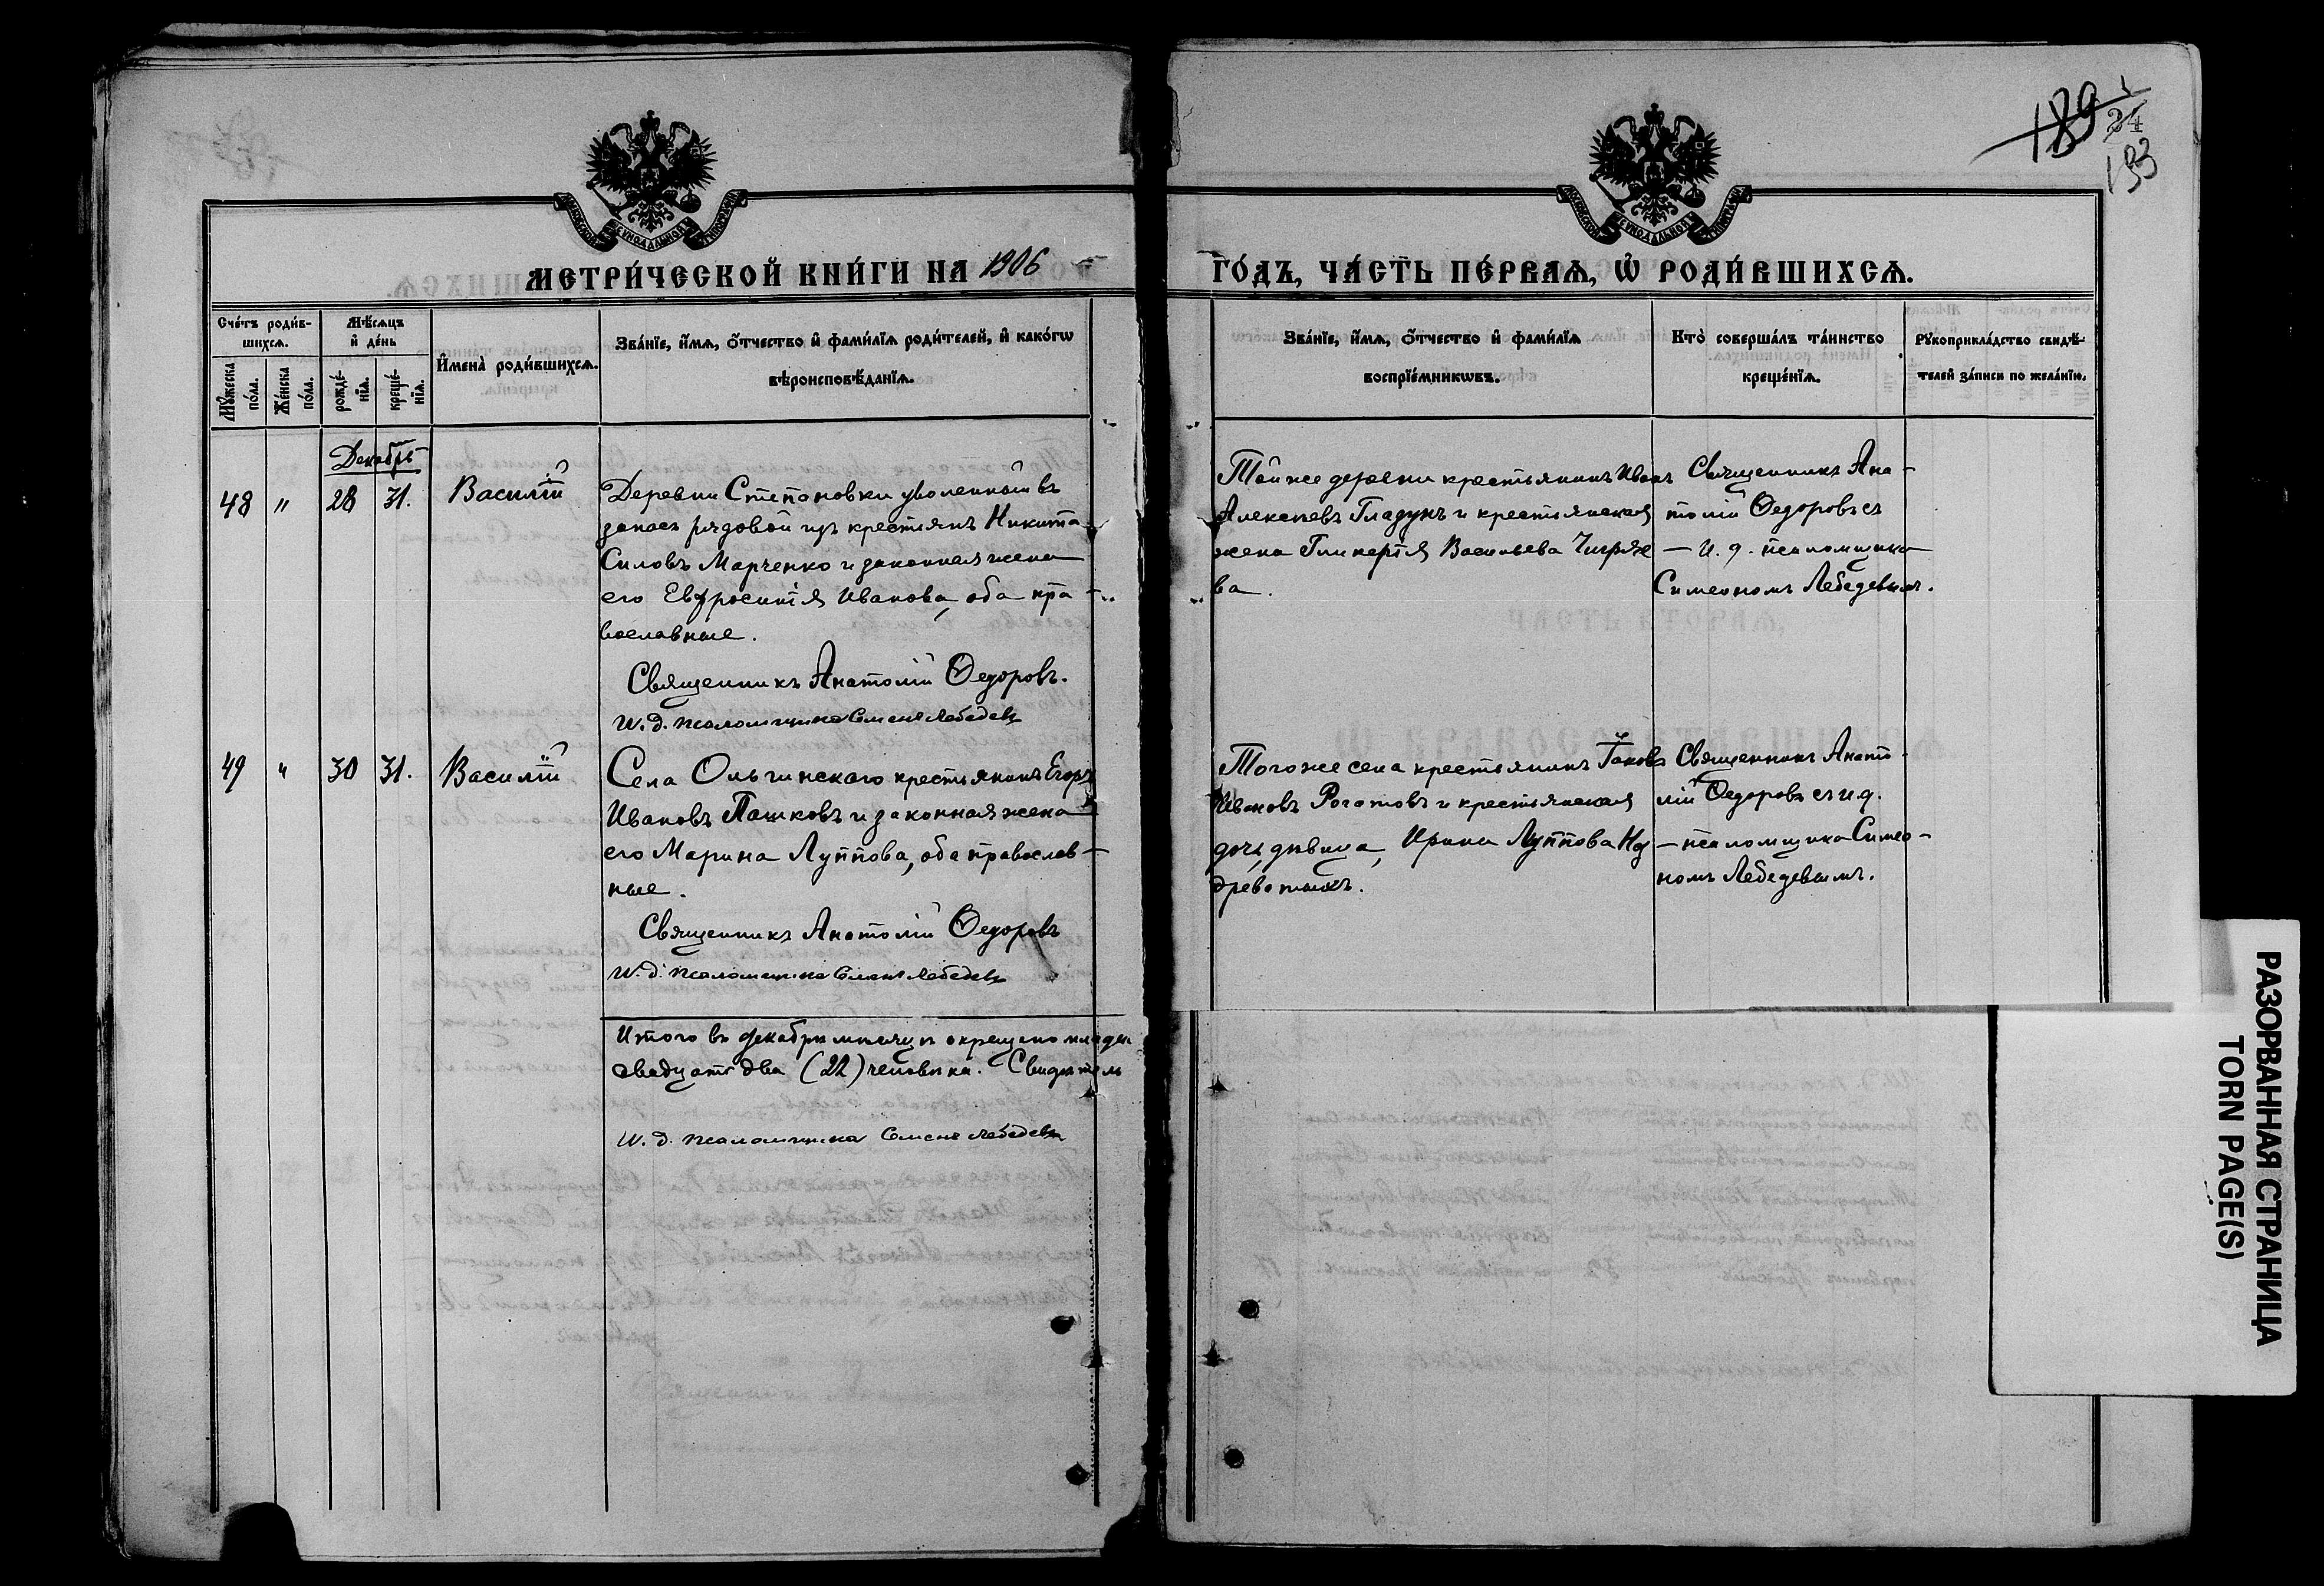 189 1
24
193
МЕТРИ́ЧЕСКОЙ КНИ́ГИ НА 1906
ГО́ДЪ, ЧА́СТЬ ПЕ́РВАѦ, Ѿ РОДИ́ВШИХСѦ.
Сче́тъ роди́в-
шихсѧ.
Мꙋ́жеска по́ла.
Же́нска по́ла.
Мѣ́сѧцъ
и҆ де́нь
рожде́-нїѧ.
креще́-нїѧ.
И҆мена̀ роди́вшихсѧ.
Зва́нїе, и҆́мѧ, ѻ҆́тчество и҆ фами́лїѧ роди́телей, и҆ како́гѡ
вѣроисповѣ́данїѧ.
Зва́нїе, и҆́мѧ, ѻ҆́тчество и҆ фами́лїѧ
воспрїе́мникѡвъ.
Кто̀ соверша́лъ та́инство
креще́нїѧ.
Рꙋкоприкла́дство свидѣ́-
телей за́писи по жела́нїю.
Декабрь
48 " 28 31. Василій
Деревни Степановки уволенный въ
запасъ рядовой изъ крестьянъ Никита
Силовъ Марченко и законная жена
его Евфросинія Иванова, оба пра-
вославные.
Священникъ Анатолій Ѳедоровъ.
И. д. псаломщика Семенъ Лебедевъ
Той же деревни крестьянинъ Иванъ
Алексѣевъ Гладунъ и крестьянская
жена Гликерія Васильева
ва.
Священникъ Ана-
толій Ѳедоровъ съ
– И. д. псаломщика
Симеономъ Лебедевымъ.
49 " 30 31. Василій
Села Ольгинскаго крестьянинъ Егоръ
Ивановъ Пашковъ и законная жена
его Марина Луппова, оба православ-
ные.
Священникъ Анатолій Ѳедоровъ
И. д. псаломщика Семенъ Лебедевъ
Того же села крестьянинъ Іаковъ
Ивановъ Рогатовъ и крестьянская
дочь дѣвица, Ирина Луппова
Священникъ Анато-
лій Ѳедоровъ съ и. д.
– псаломщика Симео-
номъ Лебедевымъ.
Итого въ декабрѣ мѣсяцѣ окрещено младен
двадцать два (22) человѣка. Свидѣтель
И. д. псаломщика Семенъ Лебедевъ
РАЗОРВАННАЯ СТРАНИЦА
TORN PAGE(S)